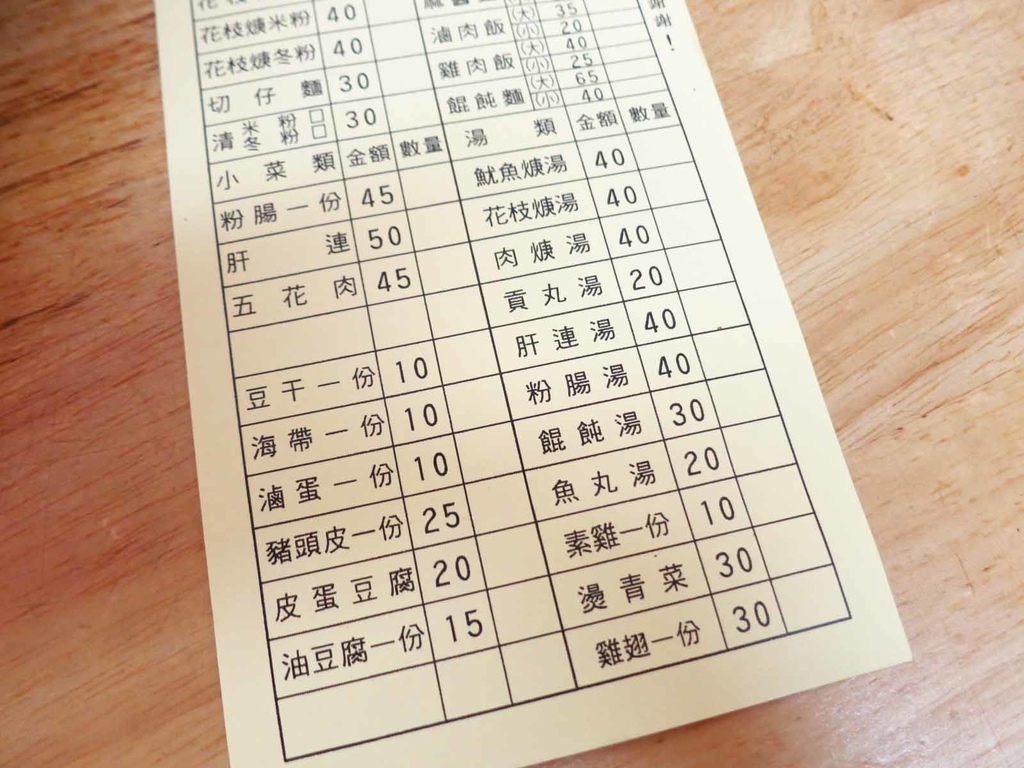 花枝焿米粉 40
花枝焿冬粉 40
切仔麵 30
清 米粉□ 冬粉□ 30
小菜類 金額 數量
粉腸一份 45
肝連 50
五花肉 45
豆干一份 10
海帶一份 10
滷蛋一份 10
豬頭皮一份 25
皮蛋豆腐 20
油豆腐一份 15
滷肉飯 (大) 35
(小) 20
雞肉飯 (大) 40
(小) 25
餛飩麵 (大) 65
(小) 40
湯類 金額 數量
魷魚焿湯 40
花枝焿湯 40
肉焿湯 40
貢丸湯 20
肝連湯 40
粉腸湯 40
餛飩湯 30
魚丸湯 20
素雞一份 10
燙青菜 30
雞翅一份 30
謝！